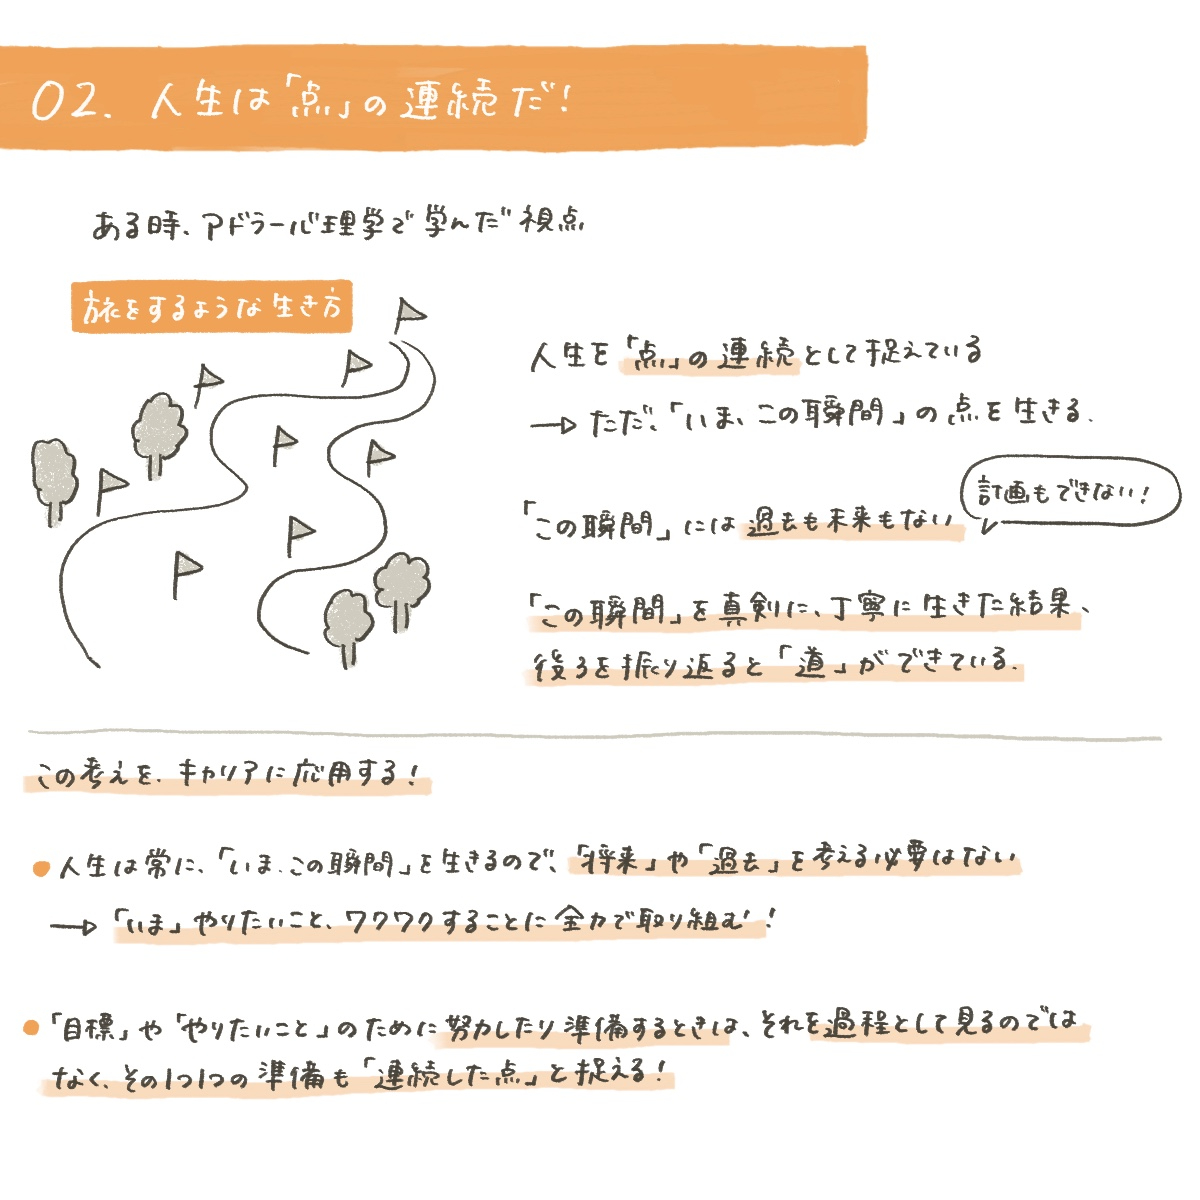 02. 人生は「点」の連続だ!
ある時、アドラー心理学で学んだ視点
旅をするような生き方
人生を「点」の連続として捉えている
→ ただ、「いま、この瞬間」の点を生きる.
計画もできない!
「この瞬間」には過去も未来もない
「この瞬間」を真剣に、丁寧に生きた結果、
後ろを振り返ると「道」ができている.
この考えを、キャリアに応用する!
● 人生は常に、「いま、この瞬間」を生きるので、「将来」や「過去」を考える必要はない
→ 「いま」やりたいこと、ワクワクすることに全力で取り組む!
● 「目標」や「やりたいこと」のために努力したり準備するときは、それを過程として見るのでは
なく、その1つ1つの準備も「連続した点」と捉える!